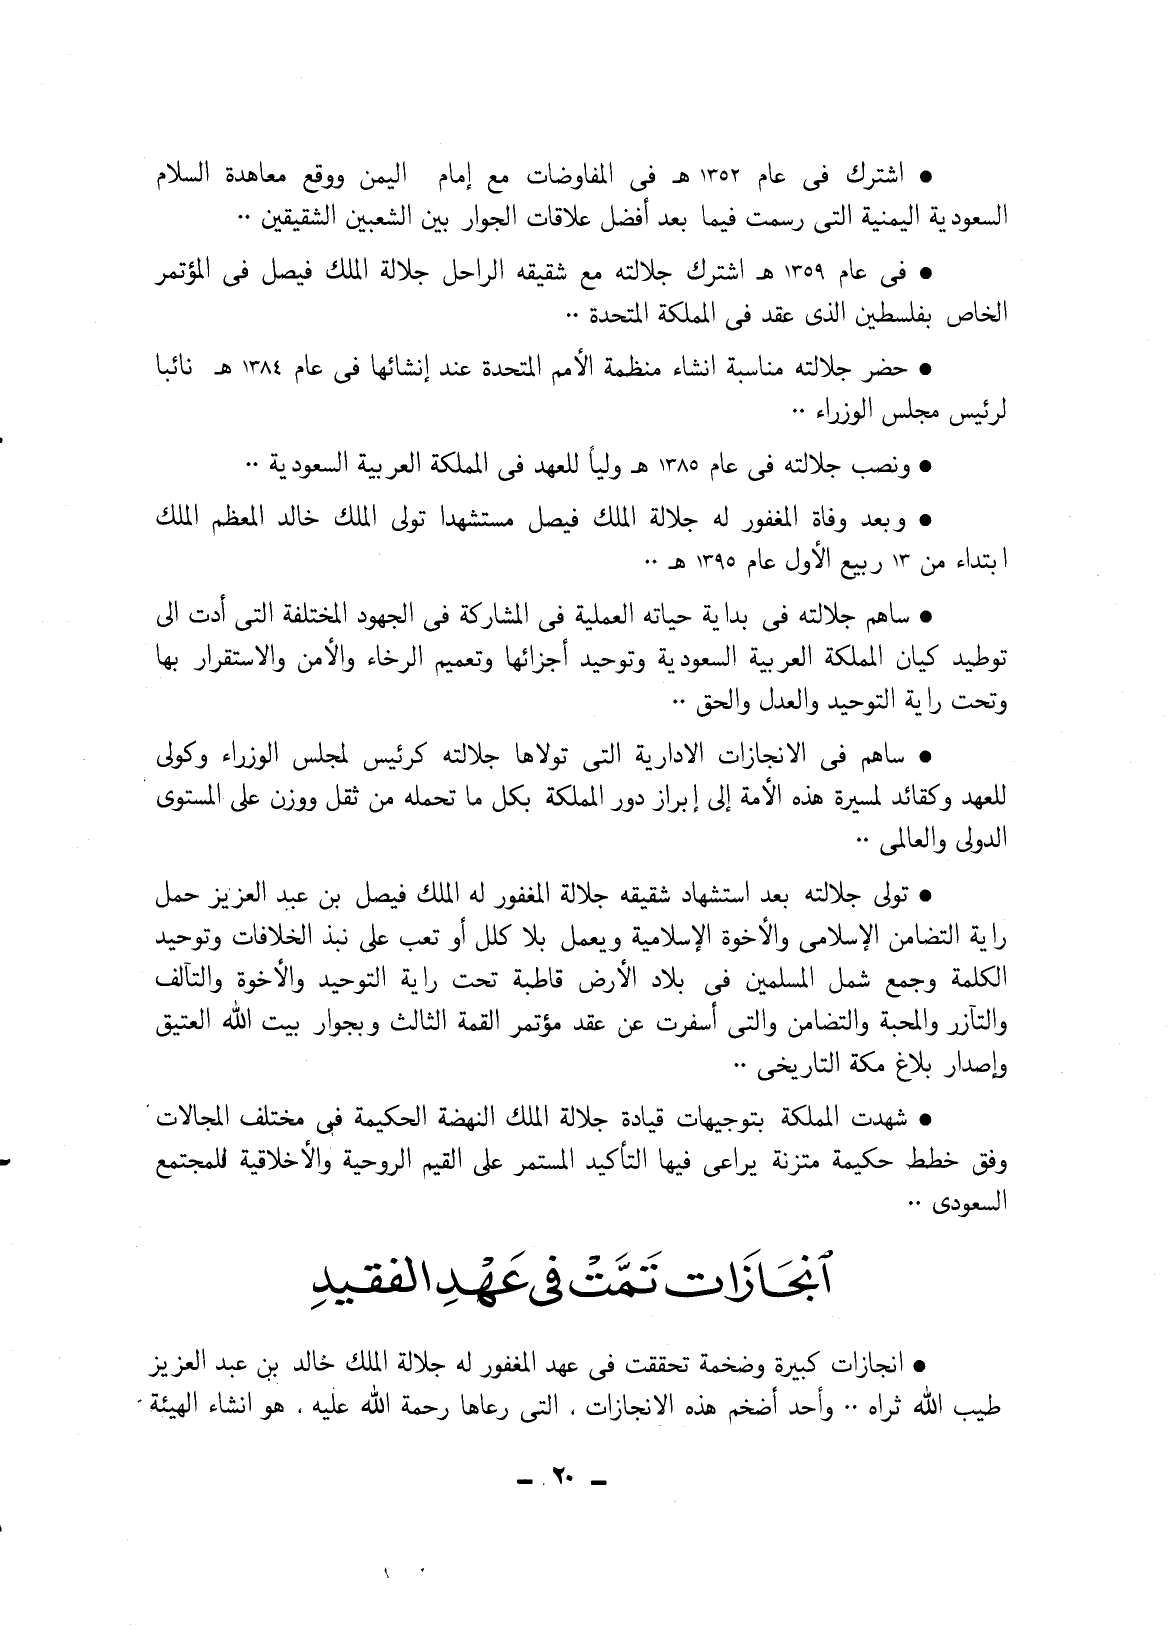 ● اشترك فى عام ١٣٥٢ هـ فى المفاوضات مع إمام اليمن ووقع معاهدة السلام
السعودية اليمنية التى رسمت فيما بعد أفضل علاقات الجوار بين الشعبين الشقيقين ..
● فى عام ١٣٥٩ هـ اشترك جلالته مع شقيقه الراحل جلالة الملك فيصل فى المؤتمر
الخاص بفلسطين الذى عقد فى المملكة المتحدة ..
● حضر جلالته مناسبة انشاء منظمة الأمم المتحدة عند إنشائها فى عام ١٣٨٤ هـ نائبا
لرئيس مجلس الوزراء ..
● ونصب جلالته فى عام ١٣٨٥ هـ ولياً للعهد فى المملكة العربية السعودية ..
● وبعد وفاة المغفور له جلالة الملك فيصل مستشهدا تولى الملك خالد المعظم الملك
ابتداء من ١٣ ربيع الأول عام ١٣٩٥ هـ ..
● ساهم جلالته فى بداية حياته العملية فى المشاركة فى الجهود المختلفة التى أدت الى
توطيد كيان المملكة العربية السعودية وتوحيد أجزائها وتعميم الرخاء والأمن والاستقرار بها
وتحت راية التوحيد والعدل والحق ..
● ساهم فى الانجازات الادارية التى تولاها جلالته كرئيس لمجلس الوزراء وكولى
للعهد وكقائد لمسيرة هذه الأمة إلى إبراز دور المملكة بكل ما تحمله من ثقل ووزن على المستوى
الدولى والعالمى ..
● تولى جلالته بعد استشهاد شقيقه جلالة المغفور له الملك فيصل بن عبد العزيز حمل
راية التضامن الإسلامى والأخوة الإسلامية ويعمل بلا كلل أو تعب على نبذ الخلافات وتوحيد
الكلمة وجمع شمل المسلمين فى بلاد الأرض قاطبة تحت راية التوحيد والأخوة والتآلف
والتآزر والمحبة والتضامن والتى أسفرت عن عقد مؤتمر القمة الثالث وبجوار بيت الله العتيق
وإصدار بلاغ مكة التاريخى ..
● شهدت المملكة بتوجيهات قيادة جلالة الملك النهضة الحكيمة فى مختلف المجالات
وفق خطط حكيمة متزنة يراعى فيها التأكيد المستمر على القيم الروحية والأخلاقية للمجتمع
السعودى ..
انجَازَات تَمَّتْ فى عَهْدِ الفقيدِ
● انجازات كبيرة وضخمة تحققت فى عهد المغفور له جلالة الملك خالد بن عبد العزيز
طيب الله ثراه .. وأحد أضخم هذه الانجازات ، التى رعاها رحمة الله عليه ، هو انشاء الهيئة
— ٢٠ —